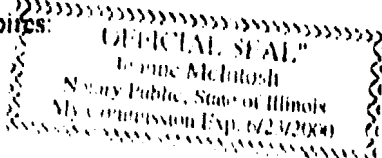 pires:
OFFICIAL SEAL"
McIntosh
Notary Public, State of Illinois
My Commission Exp. 6/23/2000